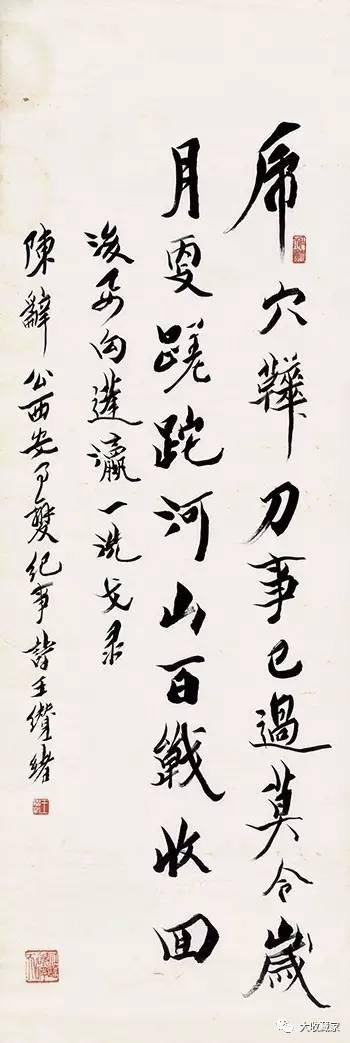 虎穴鞾刀事已過莫令歲
月更蹉跎河山百戰收回
後要向蓬瀛一洗戈录
陳辭公西安事變紀事詩王纘緒
大收藏家